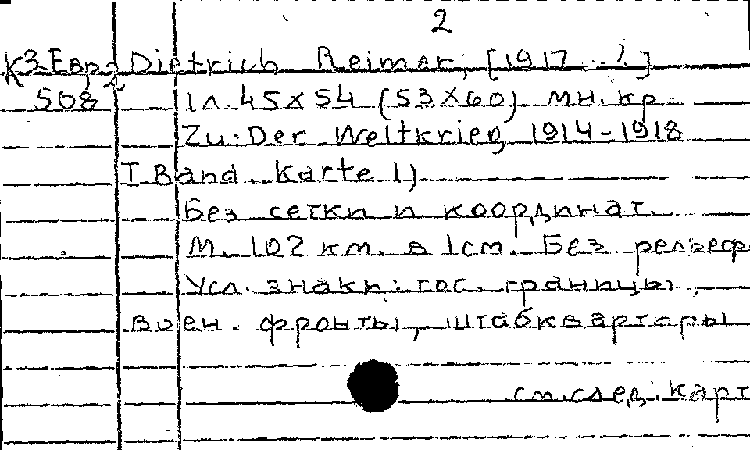 2
К3-Евр2 Dietrich Reimer, [1917...?]
508 1л. 45×54 (53×60) мн.кр.
Zu: Der Weltkrieg 1914-1918
I Band. Karte 1)
Без сетки и координат.
М. 102 км. в 1см. Без рельеф
Усл. знаки: гос. границы,
воен. фронты, штабквартеры
см.след.карт